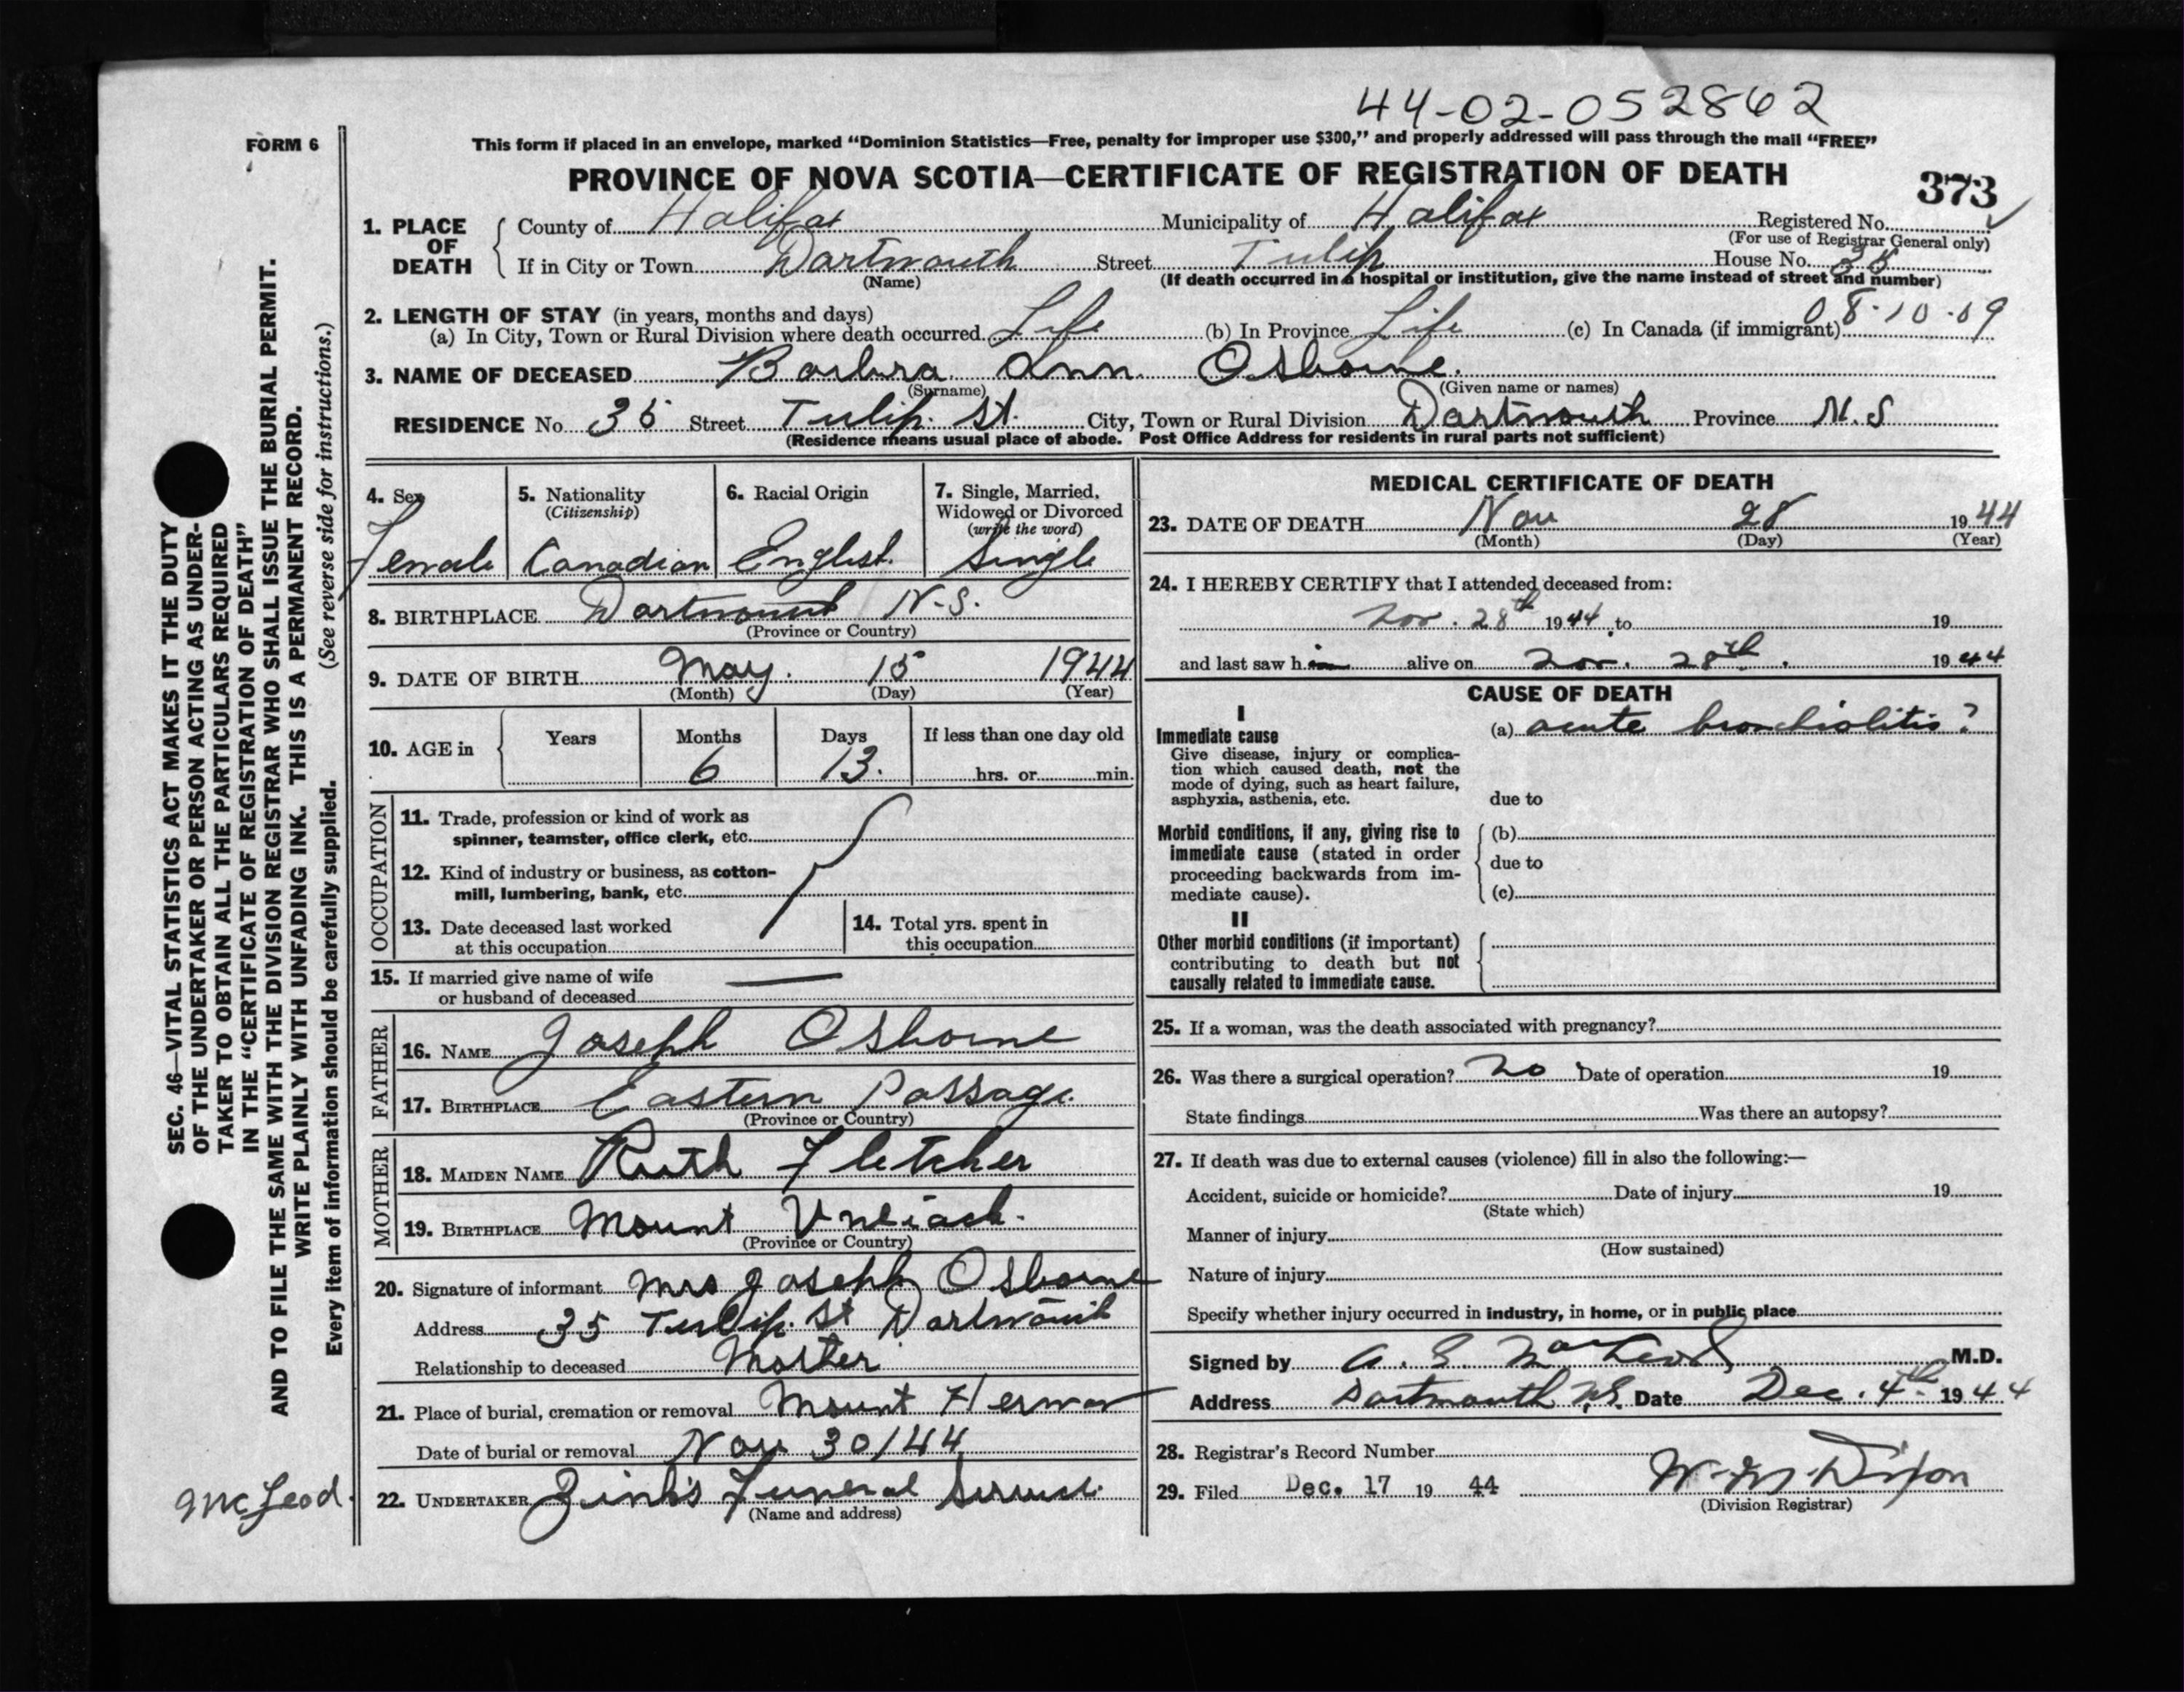 44-02-052862
FORM 6
This form if placed in an envelope, marked “Dominion Statistics—Free, penalty for improper use $300,” and properly addressed will pass through the mail “FREE”
PROVINCE OF NOVA SCOTIA—CERTIFICATE OF REGISTRATION OF DEATH
373
1. PLACE OF DEATH { County of Halifax Municipality of Halifax Registered No.
(For use of Registrar General only)
If in City or Town Dartmouth Street Tulip House No. 35
(Name) (If death occurred in a hospital or institution, give the name instead of street and number)
2. LENGTH OF STAY (in years, months and days)
(a) In City, Town or Rural Division where death occurred Life (b) In Province Life (c) In Canada (if immigrant) 08-10-09
3. NAME OF DECEASED Barbra Ann Osborne.
(Surname) (Given name or names)
RESIDENCE No. 35 Street Tulip. St. City, Town or Rural Division Dartmouth Province N.S
(Residence means usual place of abode. Post Office Address for residents in rural parts not sufficient)
4. Sex Female
5. Nationality (Citizenship) Canadian
6. Racial Origin English.
7. Single, Married, Widowed or Divorced (write the word) Single
8. BIRTHPLACE Dartmouth N.S.
(Province or Country)
9. DATE OF BIRTH May. 15 1944
(Month) (Day) (Year)
10. AGE in { Years Months 6 Days 13. If less than one day old
hrs. or min.
OCCUPATION
11. Trade, profession or kind of work as
spinner, teamster, office clerk, etc.
12. Kind of industry or business, as cotton-
mill, lumbering, bank, etc.
13. Date deceased last worked
at this occupation
14. Total yrs. spent in
this occupation
15. If married give name of wife
or husband of deceased —
FATHER
16. NAME Joseph Osborne
17. BIRTHPLACE Eastern Passage.
(Province or Country)
MOTHER
18. MAIDEN NAME Ruth Fletcher
19. BIRTHPLACE Mount Uniack.
(Province or Country)
20. Signature of informant Mrs Joseph Osborne
Address 35 Tulip. St Dartmouth
Relationship to deceased Mother
21. Place of burial, cremation or removal Mount Hermon
Date of burial or removal Nov 30/44
22. UNDERTAKER Zink's Funeral Service.
(Name and address)
MEDICAL CERTIFICATE OF DEATH
23. DATE OF DEATH Nov 28 1944
(Month) (Day) (Year)
24. I HEREBY CERTIFY that I attended deceased from:
Nov. 28th 1944 to 19
and last saw h alive on Nov. 28th. 1944
CAUSE OF DEATH
I
Immediate cause
(a) acute bronchiolitis?
Give disease, injury or complica-
tion which caused death, not the
mode of dying, such as heart failure,
asphyxia, asthenia, etc.
due to
Morbid conditions, if any, giving rise to
immediate cause (stated in order
proceeding backwards from im-
mediate cause).
(b)
due to
(c)
II
Other morbid conditions (if important)
contributing to death but not
causally related to immediate cause.
25. If a woman, was the death associated with pregnancy?
26. Was there a surgical operation? No Date of operation 19
State findings Was there an autopsy?
27. If death was due to external causes (violence) fill in also the following:—
Accident, suicide or homicide? Date of injury 19
(State which)
Manner of injury
(How sustained)
Nature of injury
Specify whether injury occurred in industry, in home, or in public place
Signed by A. G. MacLeod M.D.
Address Dartmouth N.S. Date Dec. 4th 1944
28. Registrar's Record Number
29. Filed Dec. 17 19 44 W-M-Dixon
(Division Registrar)
SEC. 46—VITAL STATISTICS ACT MAKES IT THE DUTY
OF THE UNDERTAKER OR PERSON ACTING AS UNDER-
TAKER TO OBTAIN ALL THE PARTICULARS REQUIRED
IN THE “CERTIFICATE OF REGISTRATION OF DEATH”
AND TO FILE THE SAME WITH THE DIVISION REGISTRAR WHO SHALL ISSUE THE BURIAL PERMIT.
WRITE PLAINLY WITH UNFADING INK. THIS IS A PERMANENT RECORD.
Every item of information should be carefully supplied. (See reverse side for instructions.)
McLeod.